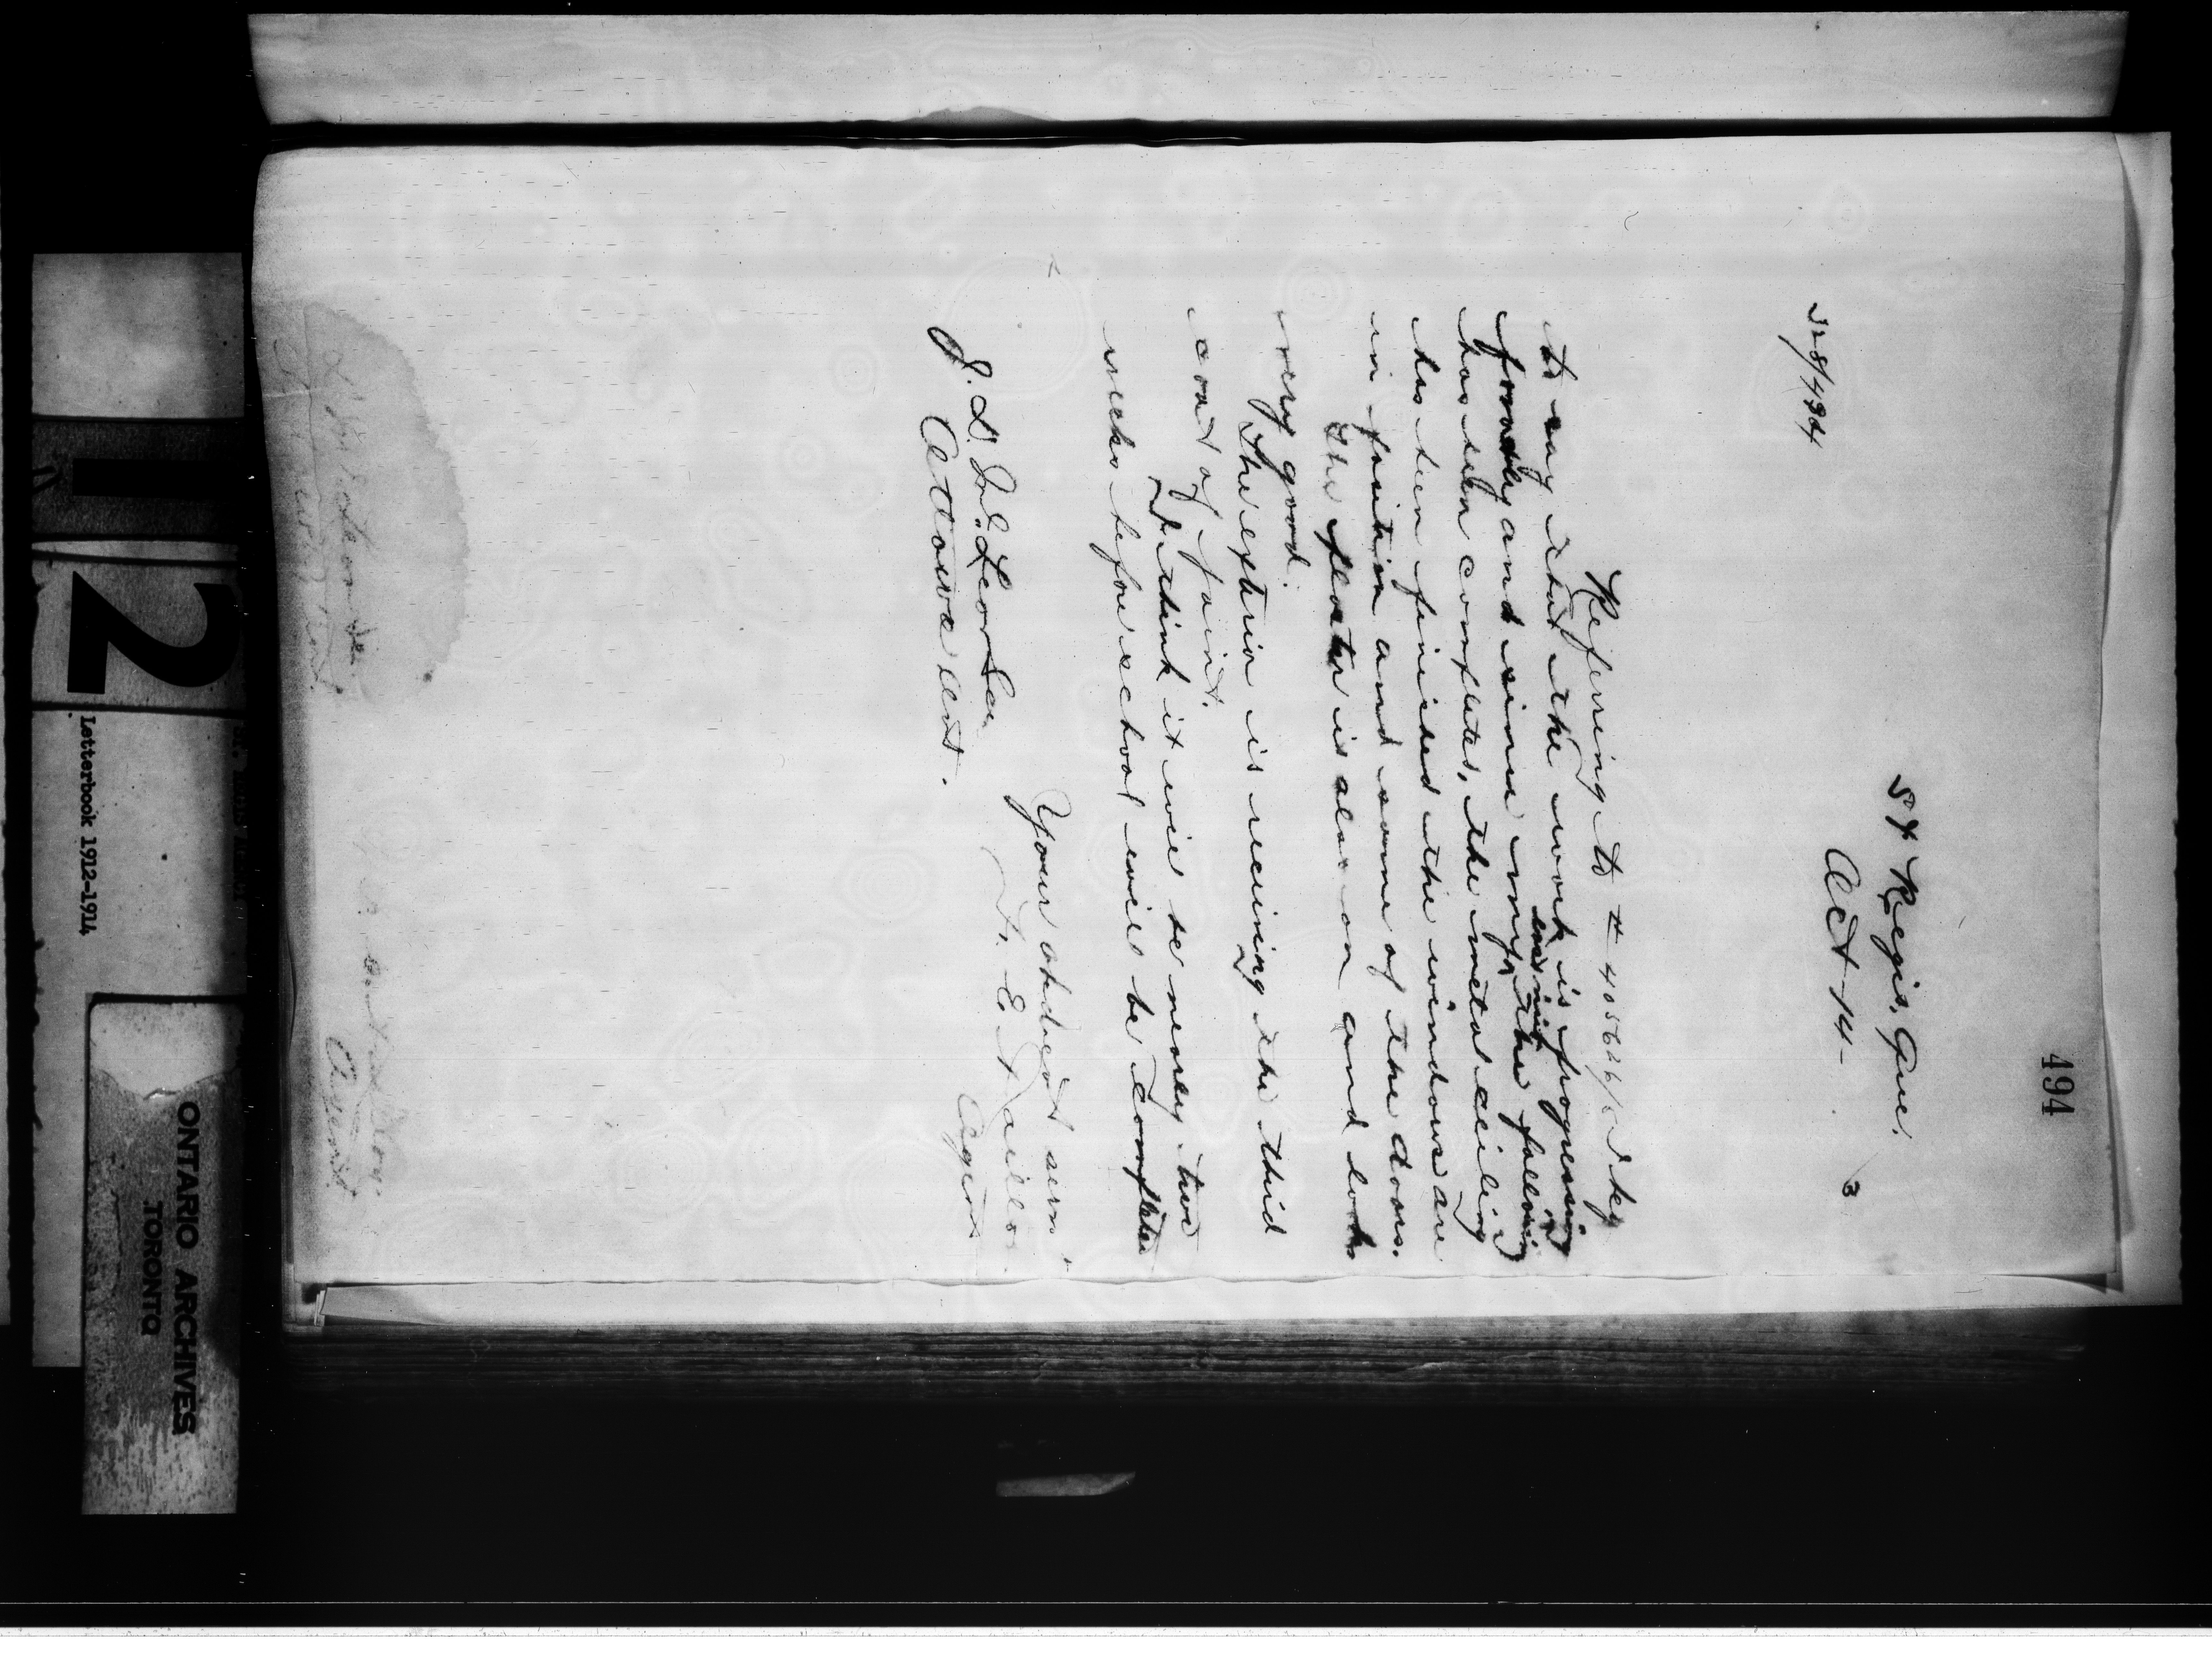 494
St Regis, Que.
Oct 14 - 3
528/494
Referring to # 405626/1
to say that the work is progressing
formely and since my last rep, the following
has been completed, the metal ceiling
has been finished the windows are
in position and some of the doors.
The plaster is also on and looks
very good.
The exterior is receiving the third
coat of paint.
I think it will be nearly two
weeks before school will be completed
Your obedient servt
F. E. Taillon
Agent
J. D. McLean Sec
Ottawa Ont.
Agent
12
Letterbook 1912-1914
ONTARIO ARCHIVES
TORONTO